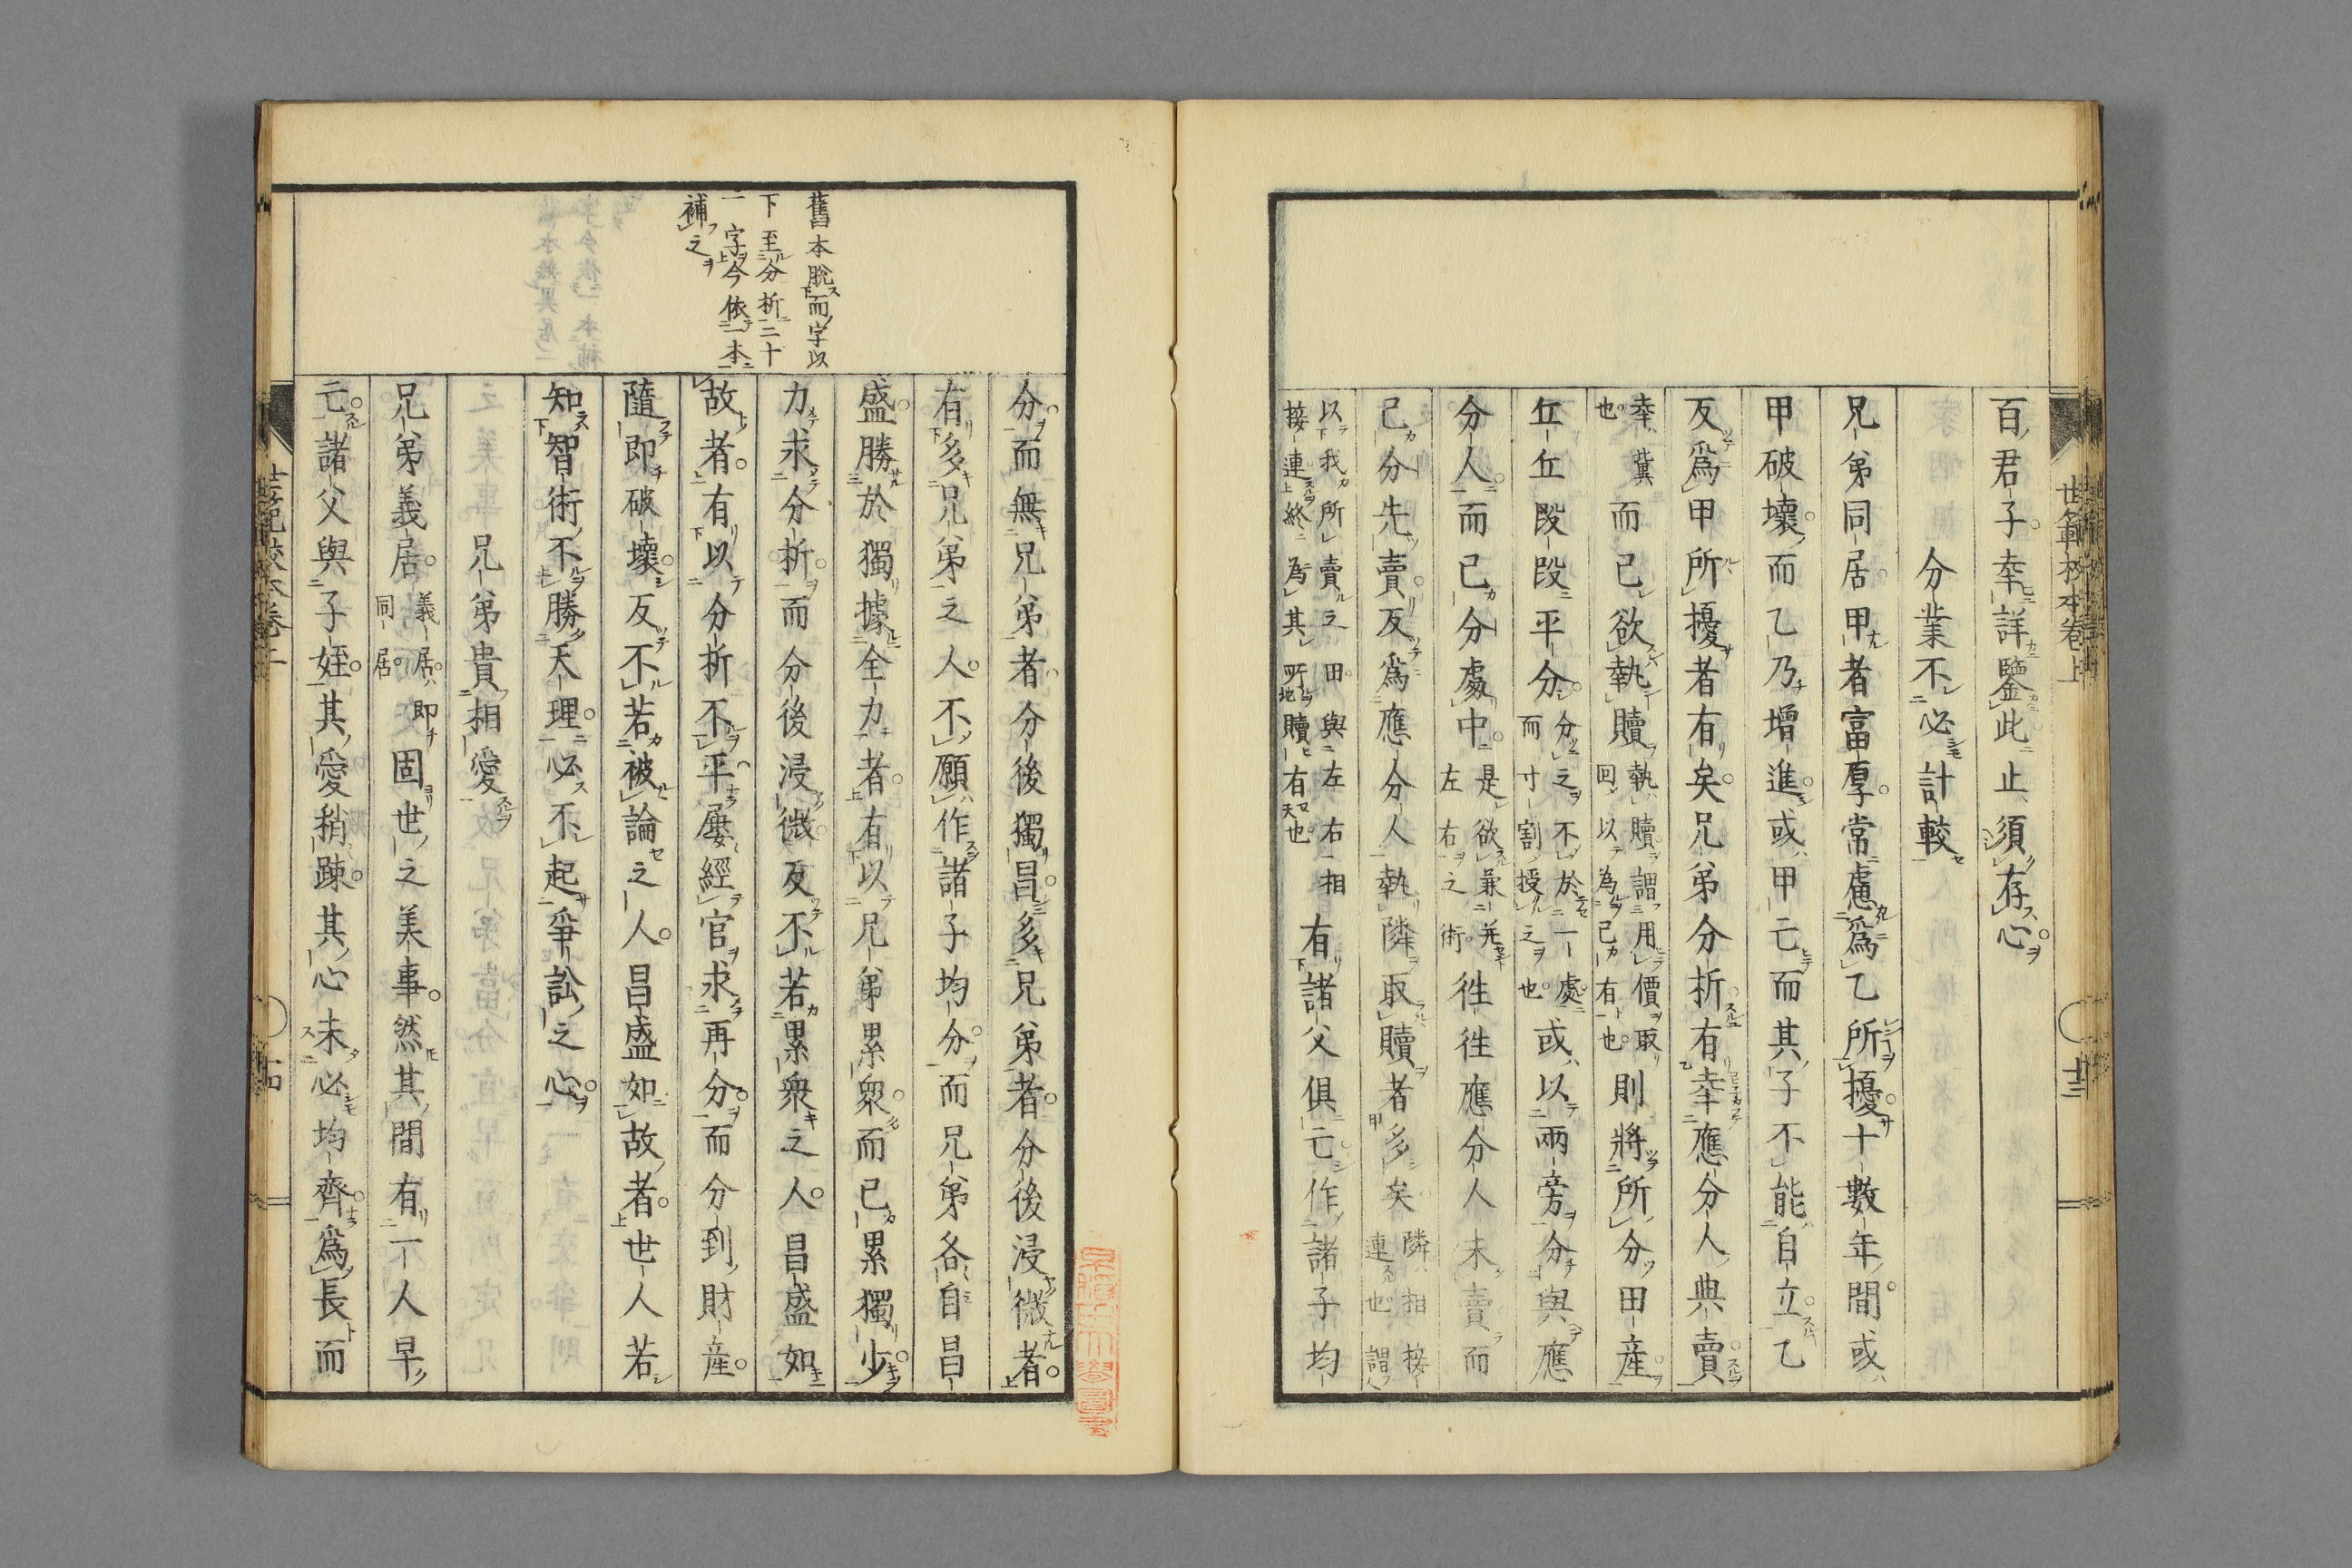 百君子幸詳鑒此止須存心
分業不必計較
兄弟同居甲者富厚常慮爲乙所擾十數年間或
甲破壞而乙乃增進或甲亡而其子不能自立乙
反爲甲所擾者有矣兄弟分析有幸應分人典賣
幸冀也而已欲執贖執贖謂用價取回以為已有也則將所分田産
丘丘段段平分分之不於一處而寸割授之也或以兩旁分與應
分人而已分處中是欲兼并左右之術徃徃應分人未賣而
已分先賣反爲應分人執隣取贖者多矣隣相接連也謂人
以我所賣之田與左右相接連終為其所贖有也有諸父俱亡作諸子均
舊本脫而字以
下至分析二十
一字今依一本
補之
分而無兄弟者分後獨昌多兄弟者分後浸微者
有多兄弟之人不願作諸子均分而兄弟各自昌
盛勝於獨據全力者有以兄弟累衆而已累獨少
力求分析而分後浸微反不若累衆之人昌盛如
故者有以分析不平屢經官求再分而分到財産
隨即破壞反不若被論之人昌盛如故者世人若
知智術不勝天理必不起爭訟之心
兄弟貴相愛
兄弟義居義居即同居固世之美事然其間有一人早
亡諸父與子姪其愛稍踈其心未必均齊爲長而
世範校本卷上